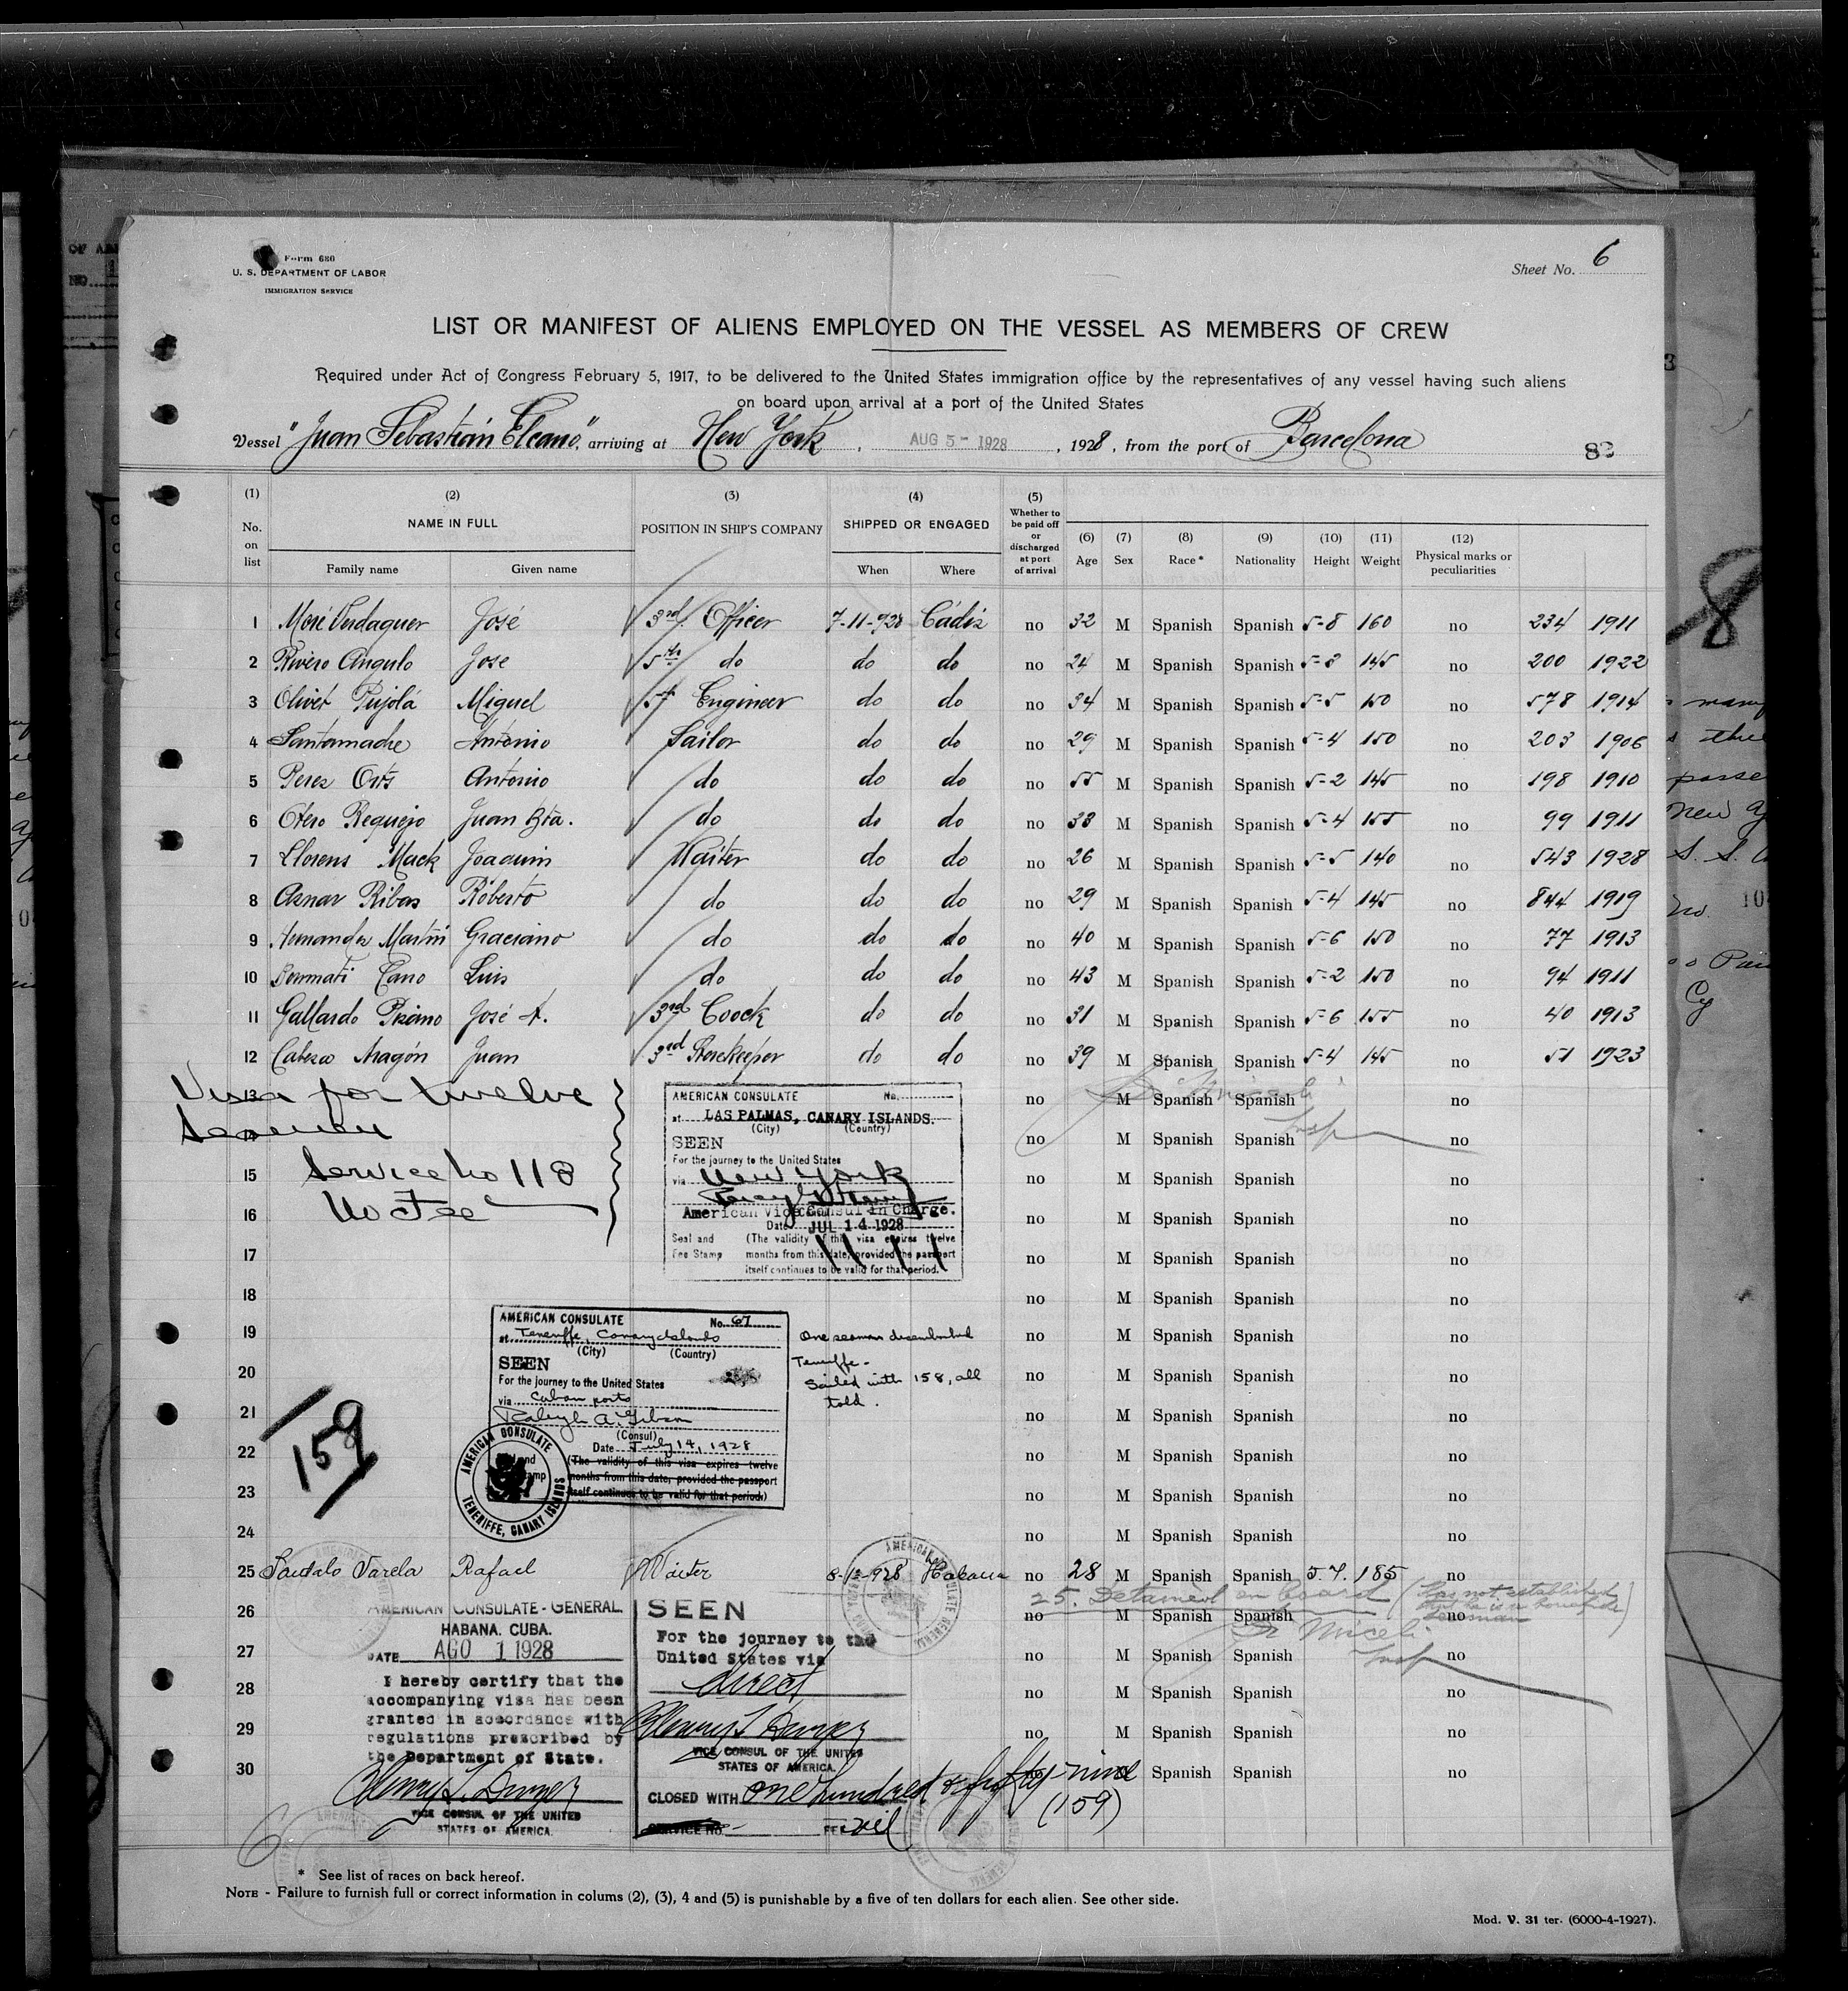 Form 680
U. S. DEPARTMENT OF LABOR
IMMIGRATION SERVICE
Sheet No. 6
LIST OR MANIFEST OF ALIENS EMPLOYED ON THE VESSEL AS MEMBERS OF CREW
Required under Act of Congress February 5, 1917, to be delivered to the United States immigration office by the representatives of any vessel having such aliens
on board upon arrival at a port of the United States
Vessel "Juan Sebastián Elcano", arriving at New York, AUG 5 - 1928, 1928, from the port of Barcelona
(1) No. on list (2) NAME IN FULL Family name Given name (3) POSITION IN SHIP'S COMPANY (4) SHIPPED OR ENGAGED When Where (5) Whether to be paid off or discharged at port of arrival (6) Age (7) Sex (8) Race * (9) Nationality (10) Height (11) Weight (12) Physical marks or peculiarities
1 Moré Verdaguer José 3rd Officer 7-11-928 Cádiz no 32 M Spanish Spanish 5-8 160 no 234 1911
2 Rivero Angulo Jose 5th do do do no 24 M Spanish Spanish 5-8 145 no 200 1922
3 Olivet Pujolá Miguel 5th Engineer do do no 34 M Spanish Spanish 5-5 150 no 578 1914
4 Santamadre Antonio Sailor do do no 29 M Spanish Spanish 5-4 150 no 203 1906
5 Perez Orts Antonio do do do no 55 M Spanish Spanish 5-2 145 no 198 1910
6 Otero Requejo Juan Bta. do do do no 33 M Spanish Spanish 5-4 155 no 99 1911
7 Llorens Mack Joaquin Waiter do do no 26 M Spanish Spanish 5-5 140 no 543 1928
8 Aznar Ribas Roberto do do do no 29 M Spanish Spanish 5-4 145 no 844 1919
9 Hernandez Martín Graciano do do do no 40 M Spanish Spanish 5-6 150 no 77 1913
10 Bonmati Cano Luis do do do no 43 M Spanish Spanish 5-2 150 no 94 1911
11 Gallardo José A. 3rd Coock do do no 31 M Spanish Spanish 5-6 155 no 40 1913
12 Cabeza Aragón Juan 3rd Storekeeper do do no 39 M Spanish Spanish 5-4 145 no 51 1923
13 no M Spanish Spanish no
Visa for twelve
seamen
Service No 118
No Fee
AMERICAN CONSULATE No.
at LAS PALMAS, CANARY ISLANDS.
(City) (Country)
SEEN
For the journey to the United States
via New York
American Vice Consul in Charge.
Date JUL 14 1928
Seal and Fee Stamp (The validity of this visa expires twelve
months from this date, provided the passport
itself continues to be valid for that period.
no M Spanish Spanish no
15 no M Spanish Spanish no
16 no M Spanish Spanish no
17 no M Spanish Spanish no
18 no M Spanish Spanish no
19 no M Spanish Spanish no
20 no M Spanish Spanish no
21 no M Spanish Spanish no
22 no M Spanish Spanish no
23 no M Spanish Spanish no
24 no M Spanish Spanish no
AMERICAN CONSULATE No. 67
at Teneriffe, Canary Islands
(City) (Country)
SEEN
For the journey to the United States
via Cuban ports
Raleigh A. Gibson
(Consul)
Date July 14, 1928
(The validity of this visa expires twelve
months from this date, provided the passport
itself continues to be valid for that period.)
AMERICAN CONSULATE
TENERIFFE, CANARY ISLANDS
One seaman disembarked
Teneriffe -
Sailed with 158, all
told.
159
25 Varela Rafael Waiter 8-1-928 Habana no 28 M Spanish Spanish 5.7. 185 no
25. Detained on board (Has not established
that he is a bonafide
seaman)
Insp
26 no M Spanish Spanish no
27 no M Spanish Spanish no
28 no M Spanish Spanish no
29 no M Spanish Spanish no
30 M Spanish Spanish no
AMERICAN CONSULATE-GENERAL.
HABANA. CUBA.
DATE AGO 1 1928
I hereby certify that the
accompanying visa has been
granted in accordance with
regulations prescribed by
the Department of State.
VICE CONSUL OF THE UNITED
STATES OF AMERICA.
SEEN
For the journey to the
United States via
direct
VICE CONSUL OF THE UNITED
STATES OF AMERICA.
CLOSED WITH one hundred & fifty-nine
(159)
SERVICE No. FEE nil
* See list of races on back hereof.
NOTE - Failure to furnish full or correct information in colums (2), (3), 4 and (5) is punishable by a five of ten dollars for each alien. See other side.
Mod. V. 31 ter. (6000-4-1927).